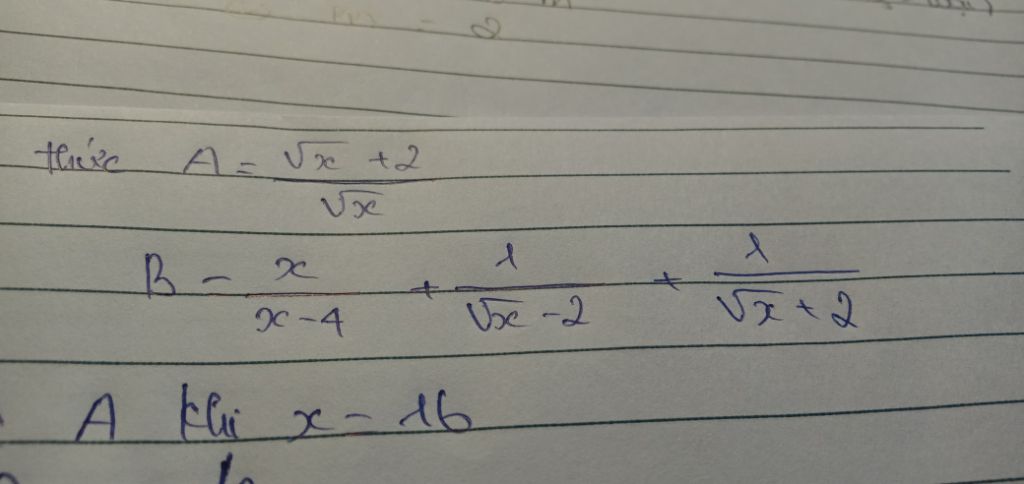 thức A = \frac{\sqrt{x} + 2}{\sqrt{x}}
B = \frac{x}{x - 4} + \frac{1}{\sqrt{x} - 2} + \frac{1}{\sqrt{x} + 2}
A khi x = 16